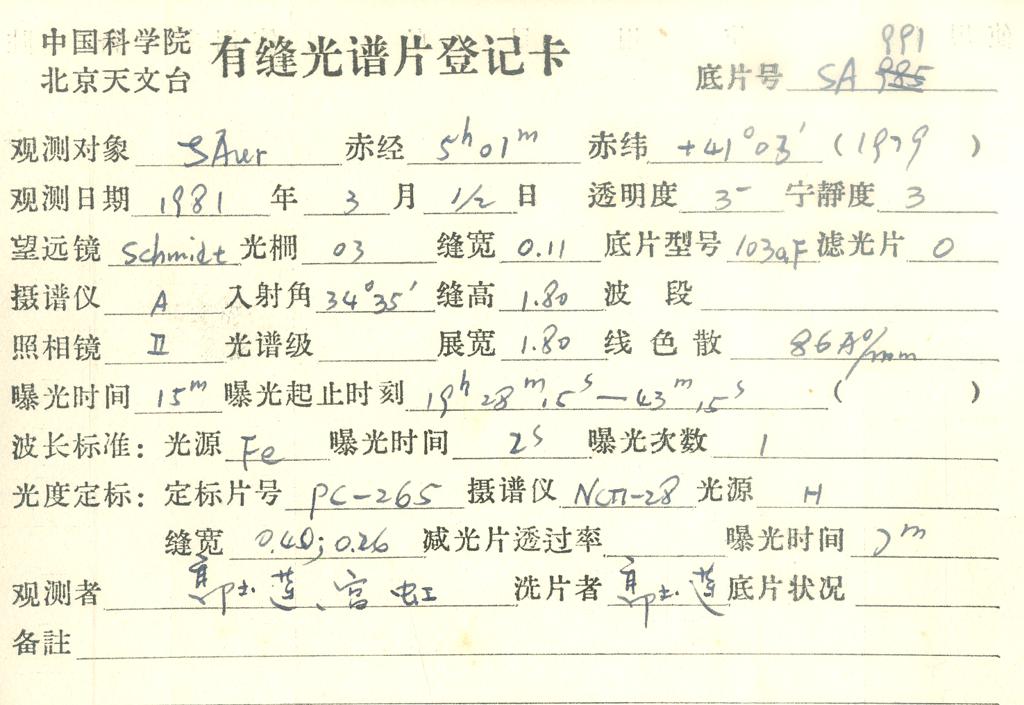 中国科学院
北京天文台
有缝光谱片登记卡
991
底片号 SA 985
观测对象 ζAur 赤经 5ʰ01ᵐ 赤纬 +41°03′ (1979)
观测日期 1981 年 3 月 1/2 日 透明度 3⁻ 宁静度 3
望远镜 Schmidt 光栅 03 缝宽 0.11 底片型号 103aF 滤光片 0
摄谱仪 A 入射角 34°35′ 缝高 1.80 波段
照相镜 Ⅱ 光谱级 展宽 1.80 线色散 86Å/mm
曝光时间 15ᵐ 曝光起止时刻 19ʰ28ᵐ15ˢ—43ᵐ15ˢ ( )
波长标准: 光源 Fe 曝光时间 2ˢ 曝光次数 1
光度定标: 定标片号 PC-265 摄谱仪 光源 H
缝宽 0.40; 0.26 减光片透过率 曝光时间
观测者 宫虹 洗片者 底片状况
备註